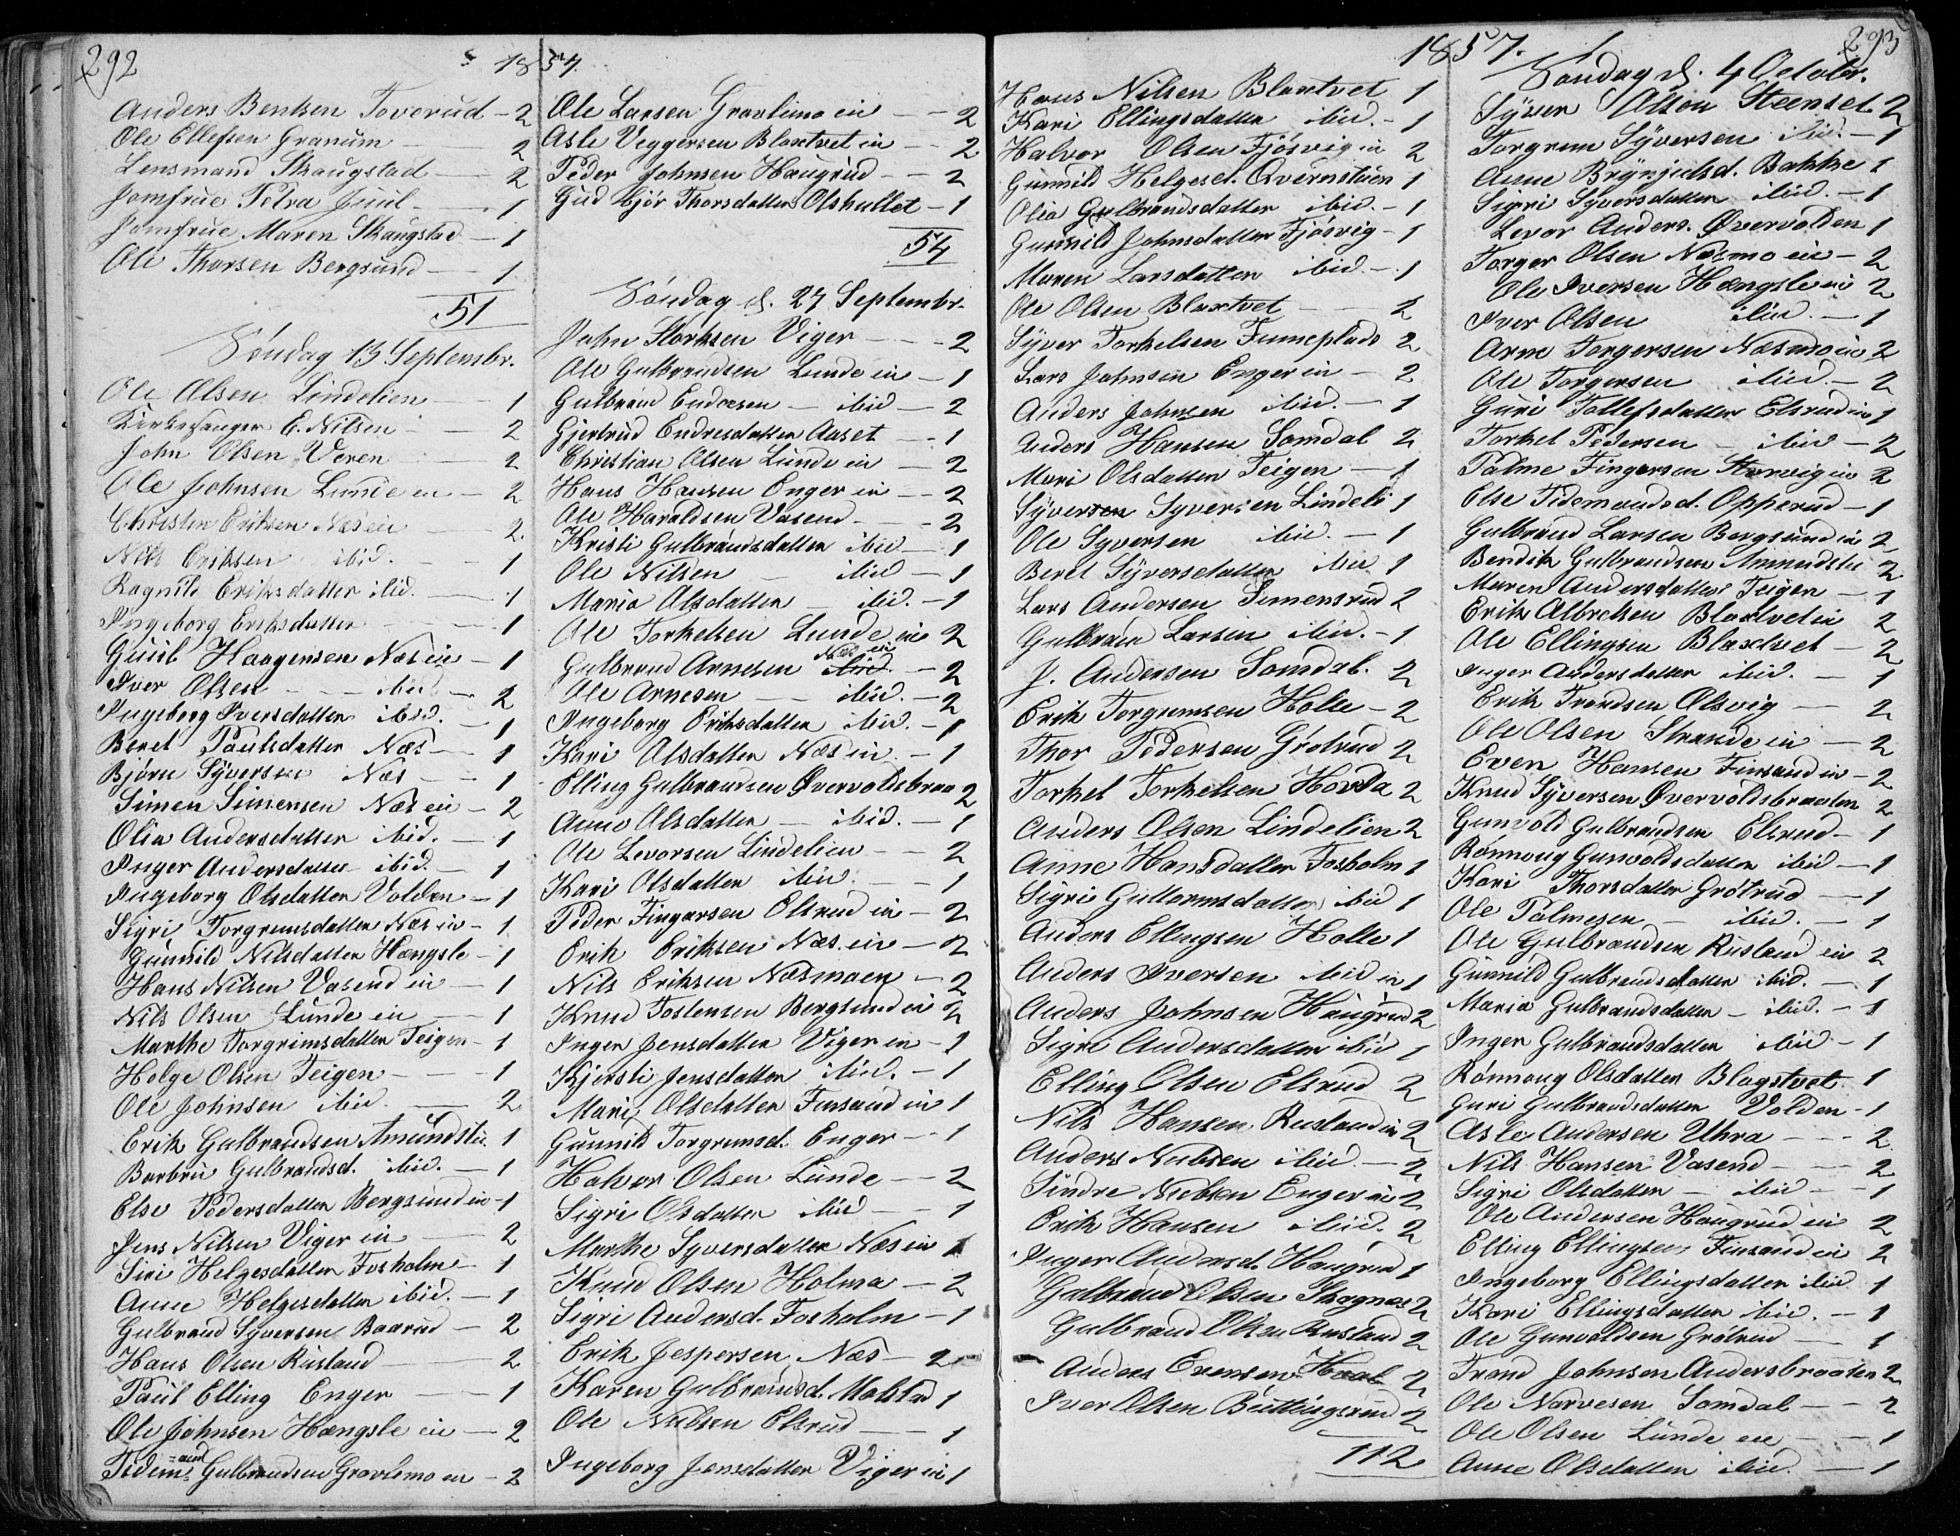 292
1857.
Anders Bentsen Toverud - 2
Ole Ellefsen Granum - 2
Lensmand Skaugstad - 2
Jomfrue Petra Juul - 1
Jomfrue Maren Skaugstad - 1
Ole Thorsen Bergsund - 1
51
Søndag 13 Septembr.
Ole Olsen Lindelien - 1
Kirkesanger E. Nilsen - 2
John Olsen Veren - 2
Ole Johnsen Lunde en - 2
Christen Eriksen Næs ein - 2.
Nils Eriksen ibid. - 1
Ragnild Eriksdatter ibid. - 1
Ingeborg Eriksdatter - 1
Guul Haagensen Næs ein - 1
Iver Olsen - ibid - 2
Ingeborg Iversdatter ibid. - 1
Beret Paulsdatter Næs - 1
Bjørn Syversen Næs - 1
Simen Simensen Næs ein - 2
Olia Andersdatter ibid. - 1
Inger Andersdatter ibid. - 1
Ingeborg Olsdatter Volden - 1
Sigri Torgrimsdatter Næs in - 1
Gunnild Nilsdatter Hængsle - 1
Hans Nilsen Vasend in - 1
Nils Olsen Lunde ein - 1
Marthe Torgrimsdatter Teigen - 1
Helge Olsen Teigen - 1
Ole Johnsen ibid. - 2
Erik Gulbrandsen Amundstu. 1
Barbru Gulbrandsd. ibid. - 1
Else Pedersdatter Bergsund in - 1
Jens Nilsen Viger in - 2
Siri Helgesdatter Fosholm - 1
Anne Helgesdatter ibid. - 1
Gulbrand Syversen Baarud - 2
Hans Olsen Rusland - 2
Paul Elling Enger - 1
Ole Johnsen Hængsle ein - 2
Tidemand Gulbrandsen Gravlimo en - 2
Ole Larsen Gravlimo ein - 2
Asle Veggersen Blaxtvet in - 2
Peder Johnsen Haugrud - 2
Gudbjør Thorsdatter Olshullet - 1
54
Søndag d. 27 Septembr.
John Storksen Viger - 2
Ole Gulbrandsen Lunde in - 1
Gulbrand Endresen - ibid - 2
Gjertrud Endresdatter Aaset - 1
Christian Olsen Lunde in - 2
Hans Hansen Enger in - 2
Ole Haraldsen Vasend - 2
Kristi Gulbrandsdatter ibid - 1
Ole Nilsen - ibid - 1
Maria Olsdatter - ibid. - 1
Ole Torkelsen Lunde in 2
Gulbrand Arnesen Næs ein - 2
Ole Arnesen - ibid. - 2
Ingeborg Eriksdatter ibid. - 1
Kari Olsdatter Næs in - 1
Elling Gulbrandsen Øvervoldsbraa 2
Anne Olsdatter - ibid. - 1
Ole Levorsen Lindelien - 2
Kari Olsdatter ibid. - 1
Peder Fingarsen Elsrud in - 2
Erik Eriksen Næs in - 2
Nils Eriksen Næsmoen - 2
Knud Tostensen Bergsund in 2
Inger Jensdatter Viger in - 1
Kjersti Jensdatter ibid. - 1
Mari Olsdatter Finsand in 1
Gunnild Torgrimsd. Enger - 1
Halvor Olsen Lunde - 2
Sigri Olsdatter ibid - 1
Marthe Syversdatter Næs in 1
Knud Olsen Holma - 2
Sigri Andersd. Fosholm - 1
Erik Jespersen Næs - 2
Karen Gulbrandsd. Molstad 1
Ole Nielsen Elsrud - 1
Ingeborg Jensdatter Viger in 1
1857.
293
Hans Nilsen Blaxtvet 1
Kari Ellingsdatter ibid. - 1
Halvor Olsen Fjøsvig in 2
Gunnild Helgesd. Qvernstuen 1
Olia Gulbrandsdatter ibid. - 1
Gunnild Johnsdatter Fjøsvig - 1
Maren Larsdatter ibid. - 1
Ole Olsen Blaxtvet - 2
Syver Torkelsen Finneplads 2
Lars Johnsen Enger in - 2
Anders Johnsen ibid. - 1
Anders Hansen Somdal 2
Mari Olsdatter Teigen - 1
Syversen Syversen Lindeli 1
Ole Syversen ibid. - 1
Beret Syversdatter ibid 1
Lars Andersen Simensrud 2
Gulbrand Larsen ibid. - 1
J. Andersen Somdal. 2
Erik Torgrimsen Holle - 2
Thor Pedersen Grøtrud 2
Torkel Torkelsen Hovda 2
Anders Olsen Lindelien 2
Anne Hansdatter Fosholm 1
Sigri Guttormsdatter ibid 1
Anders Ellingsen Holle 1
Anders Iversen ibid in 1
Anders Johnsen Haugrud 2
Sigri Andersdatter ibid 1
Elling Olsen Elsrud 2
Nils Hansen Rusland in 2
Anders Nubsen ibid - 2
Sindre Nielsen Enger in 2
Erik Hansen ibid. 2
Inger Andersd. Haugrud 1
Gulbrand Olsen Skognæs 2
Gulbrand Olsen Rusland 2
Anders Evensen Hoal 2
Iver Olsen Buttingsrud 2
112
Søndag d. 4 Octobr.
Syver Olsen Steenset 2
Torgrim Syversen ibid. - 1
Anne Brynjulsd. Bakke 1
Sigri Syversdatter ibid. - 1
Levor Anders. Øvervolden 1
Torger Olsen Næsmo in - 2
Ole Iversen Hængsle in 2
Iver Olsen ibid. - 1
Arne Torgersen Næsmo in 2
Ole Torgersen ibid. - 2
Guri Tollefsdatter Elsrud in 1
Torkel Pedersen - ibid - 2
Palme Fingarsen Storvig in 2
Else Tidemandsd. Opperud - 1
Gulbrand Larsen Bergsund in 2
Bendik Gulbrandsen Amundstu 2
Maren Andersdatter Teigen - 1
Erik Albretsen Blaxtvet in 2
Ole Ellingsen Blaxtvet - 2
Inger Andersdatter ibid. - 1
Erik Trondsen Olsvig - 2
Ole Olsen Strande in - 2
Even Hansen Finsand in - 2
Knud Syversen Øvervoldsbraaten 2
Gunvold Gulbrandsen Elsrud - 1
Rønnoug Gunvoldsdatter ibid - 1
Kari Thorsdatter Grøtrud - 1
Ole Palmesen - ibid. - 1
Ole Gulbrandsen Rusland in 2
Gunnild Gulbrandsdatter ibid. - 1
Maria Gulbrandsdatter - ibid. - 1
Inger Gulbrandsdatter ibid - 1
Rønnoug Olsdatter Blagstvet. 1
Guri Gulbrandsdatter Volden - 1
Asle Andersen Uhra - 2
Nils Hansen Vasend - 2
Sigri Olsdatter - ibid - 1
Ole Andersen Haugrud in 2
Elling Ellingsen Finsand in 2
Ingeborg Ellingsdatter ibid 1
Kari Ellingsdatter ibid. - 1
Ole Gunvoldsen Grøtrud - 1
Trond Johnsen Andersbraaten 2
Ole Narvesen Somdal - 2
Ole Olsen Lunde en - 1
Anne Olsdatter ibid. - 1